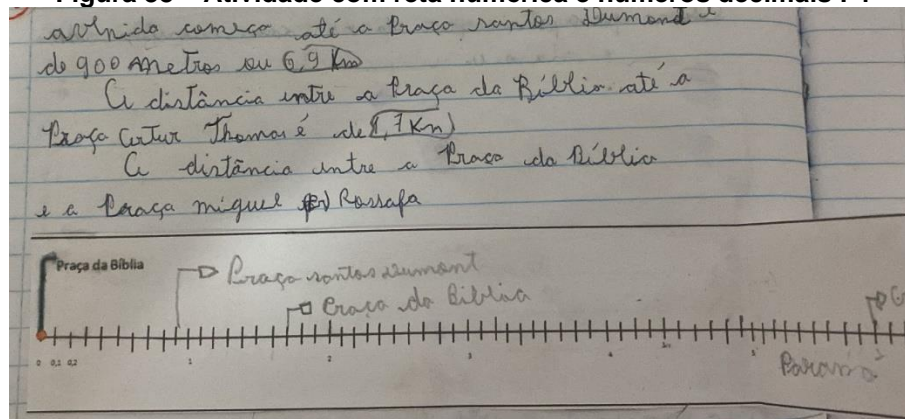 avenida começa até a Praça santos Dumont é
de 900 metros ou 0,9 Km
A distância entre a Praça da Bíblia até a
Praça Artur Thomas é de 1,7 Km
A distância entre a Praça da Bíblia
e a Praça miguel Rossafa
Praça da Bíblia
Praça santos dumont
Praça da Bíblia
0 0,1 0,2 1 2 3 4 5
Paraná